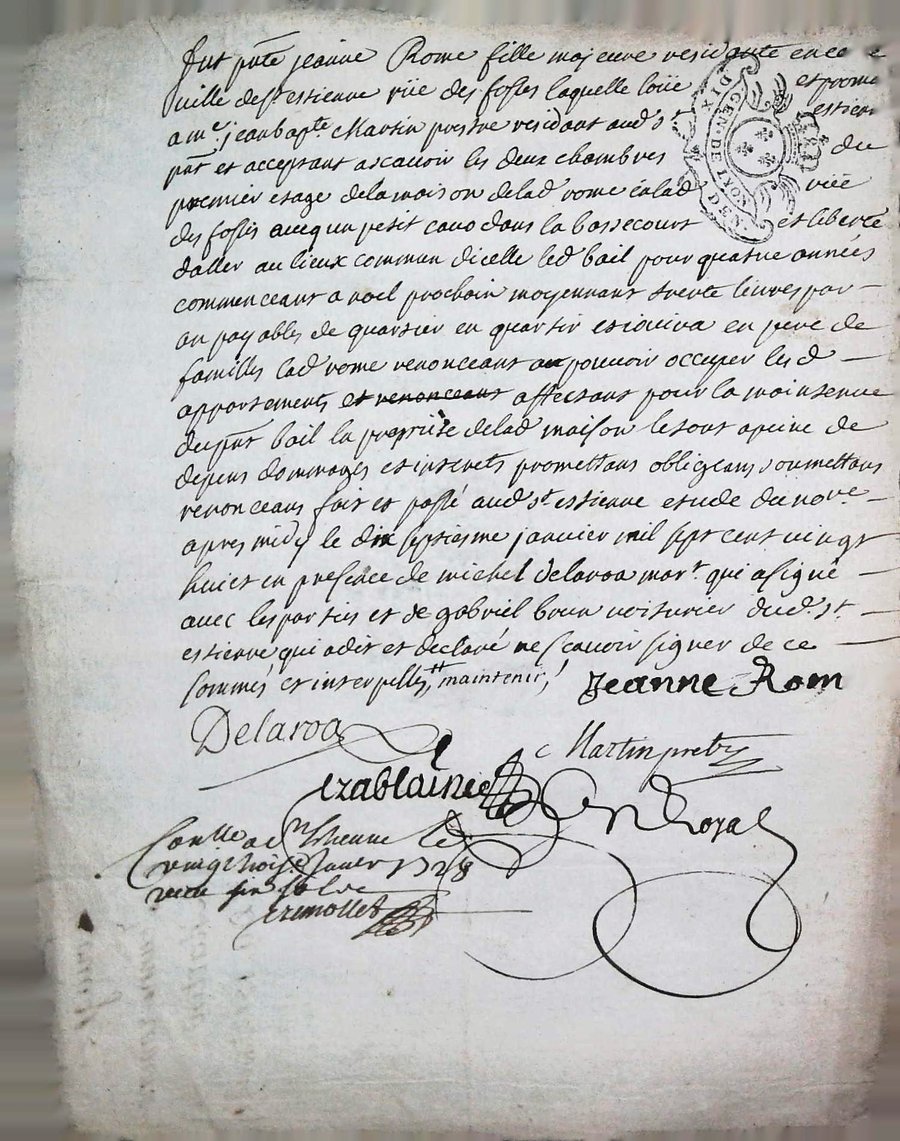 fut pnte jeanne Rome fille majeure residante en ce
ville de st estienne rüe des fosses laquelle loüe et prome
a me jean bapte Martin prestre residant aud st estien
pnt et acceptant ascavoir les deux chambres du
premier estage dela maison delad rome en lad rüe
des fosses avec un petit cavo dans la bassecourt et liberté
daller au lieux commun dicelle led bail pour quatre années
commenceant a noel prochain moyennant trente livres par
an payables de quartier en quartir et jouira en pere de
familles lad rome renonceant au pouvoir occuper les d
appartements et renonceant affectant pour la maintenue
du pnt bail la proprieté delad maison le tout a peine de
depens dommages et interets promettans obligeans soumettans
renonceans fait et passé aud st estienne etude du nore
apres midy le dix septiesme janvier mil sept cent vingt
huict en presence de michel delaroa mart qui a signé
avec les partis et de gabriel brun voiturier dud st
estienne qui a dit et declaré ne scavoir signer de ce
sommés et interpellés, maintenir,
Jeanne Rom
Delaroa
Martin pretre
Royal
DIX DEN
GEN. DE
estienne le
vingt trois janver 1728